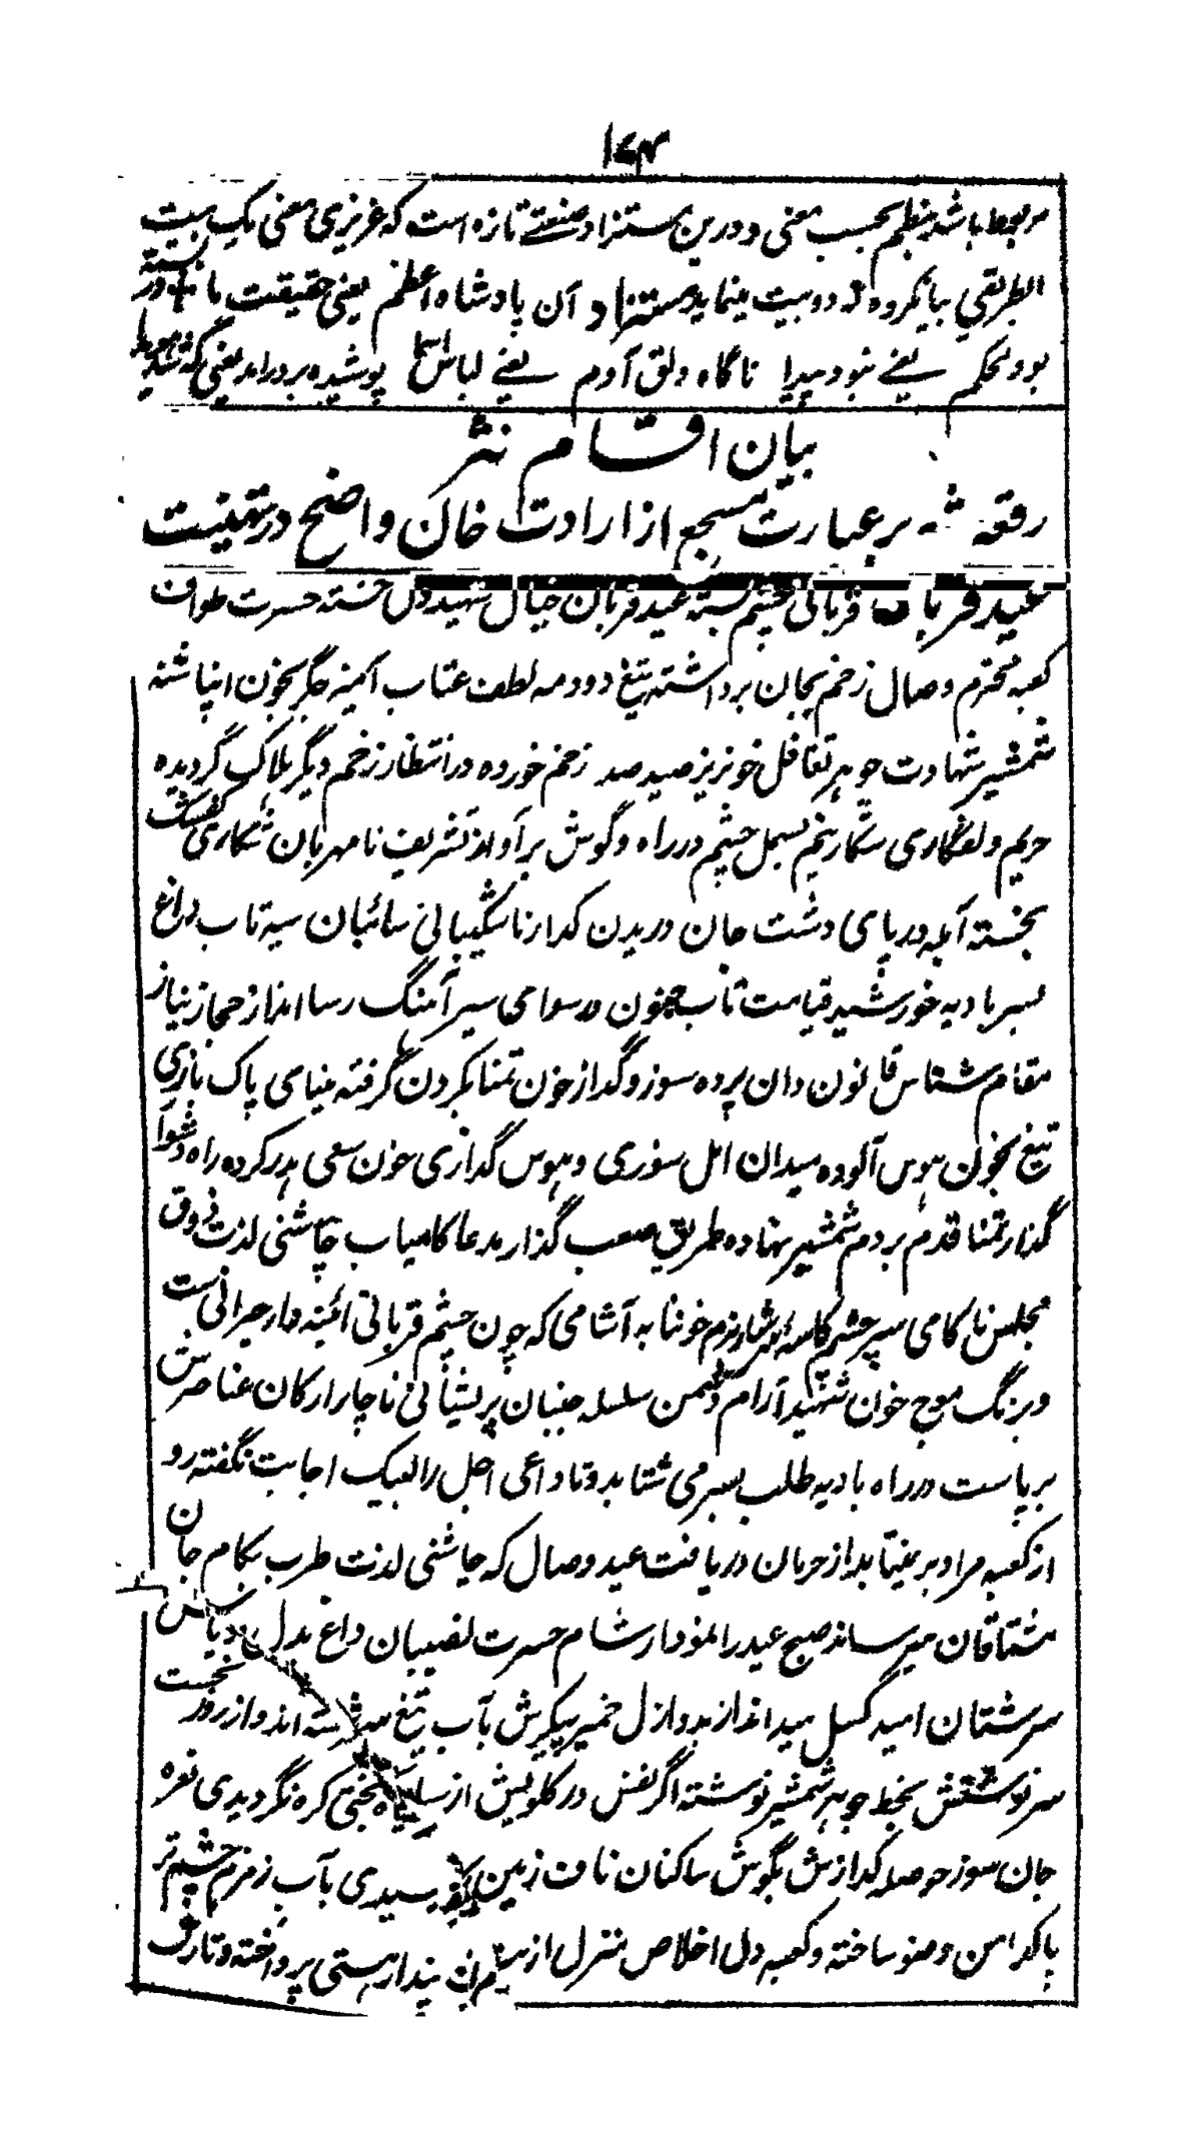 ۱۷۴
مربوط باشد بنظم بحسب معنی و درین مستزاد صنعتے تازه است که عزیزی معنی یک بیت
الطریقی بیا کرده که دو بیت مینماید مستزاد آن پادشاه اعظم یعنی حقیقت ما در بسته
بود محکم یعنے نبود پیدا ناگاه دلق آدم یعنے لباس اسما پوشیده بر در آمد یعنی که شد هویدا
بیان اقسام نثر
رقعه شه بر عبارت مسجع از ارادت خان واضح در تهنیت
عید قربان قربانی چشم بسته عید قربان خیال شهید دل خسته حسرت طواف
کعبه محترم وصال زخم بجان برداشته تیغ دو دمه لطف عتاب آمیز جگر بخون انباشته
شمشیر شهادت جوهر تغافل خونریز صید صد زخم خورده در انتظار زخم دیگر هلاک گردیده
حریم دلفگاری شکار نیم بسمل چشم در راه و گوش بر آواز تشریف نامهربان شکاری کفش
بخسته آبله در پای دشت جان دریدن گداز ناشکیبائی سائبان سیه تاب داغ
بسر بادیه خورشید قیامت تاب جنون رسوامی سیر آهنگ رسا انداز حجاز نیاز
مقام شناس قانون دان پرده سوز و گداز خون تمنا بگردن گرفته مینای پاک بازی
تیغ بخون هوس آلوده میدان امل سوزی و هوس گدازی خون سعی هدر کرده راه دشوار
گذار تمنا قدم بر دم شمشیر نهاده طریق صعب گذار مدعا کامیاب چاشنی لذت ذوق
مجلس ناکامی سیر چشم کاسه سرشار بزم خونابه آشامی که چون چشم قربانی آئینه دار حیرانی ست
و برنگ موج خون شهید آرام دشمن سلسله جنبان پریشانی ناچار ارکان عناصرش
برپاست در راه بادیه طلب بسر می شتابد و تا داعی اجل را لبیک اجابت نگفته رو
از کعبه مراد بر نمیتابد از حرمان دریافت عید وصال که چاشنی لذت طرب بکام جان
مشتاقان میرساند صبح عید را نمودار شام حسرت نصیبان داغ بدل
سرشتان امید گسل میداند از بدو ازل خمیر پیکرش بآب تیغ سرشته اند و از روز نخست
سرنوشتش بخط جوهر شمشیر نوشته اگر نفس در گلویش از سیاه بختی گره نگردیدی نعره
جان سوز حوصله گدازش بگوش ساکنان ناف زمین رسیدی بآب زمزم چشم تر
پاکدامن وضو ساخته و کعبه دل اخلاص منزل از پندار هستی پرداخته و تارک